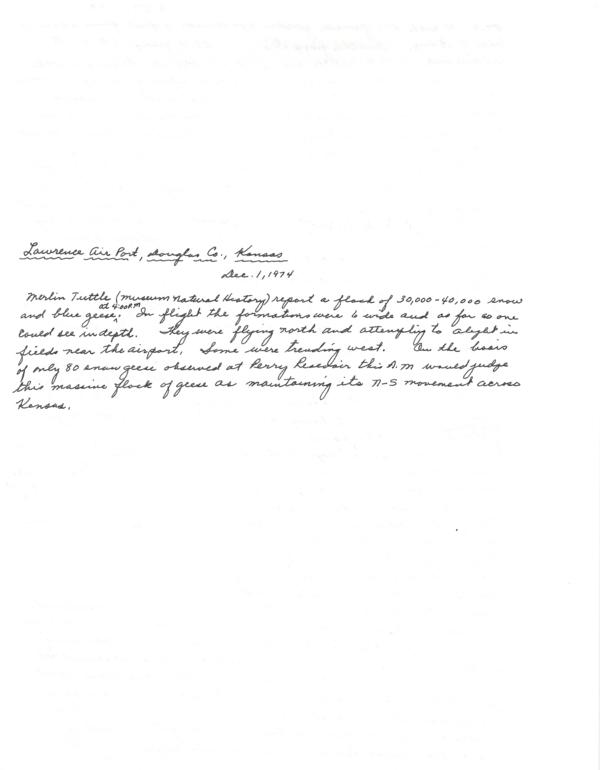 Lawrence Air Port, Douglas Co., Kansas
Dec. 1, 1974
Merlin Tuttle (Museum Natural History) report a flock of 30,000-40,000 snow
at 4:00 P.M
and blue geese. In flight the formations were 6 wide and as far as one
could see in depth. They were flying north and attempting to alight in
fields near the airport. Some were trending west. On the basis
of only 80 snow geese observed at Perry Resevoir this A.M would judge
this massive flock of geese as maintaining its N-S movement across
Kansas.